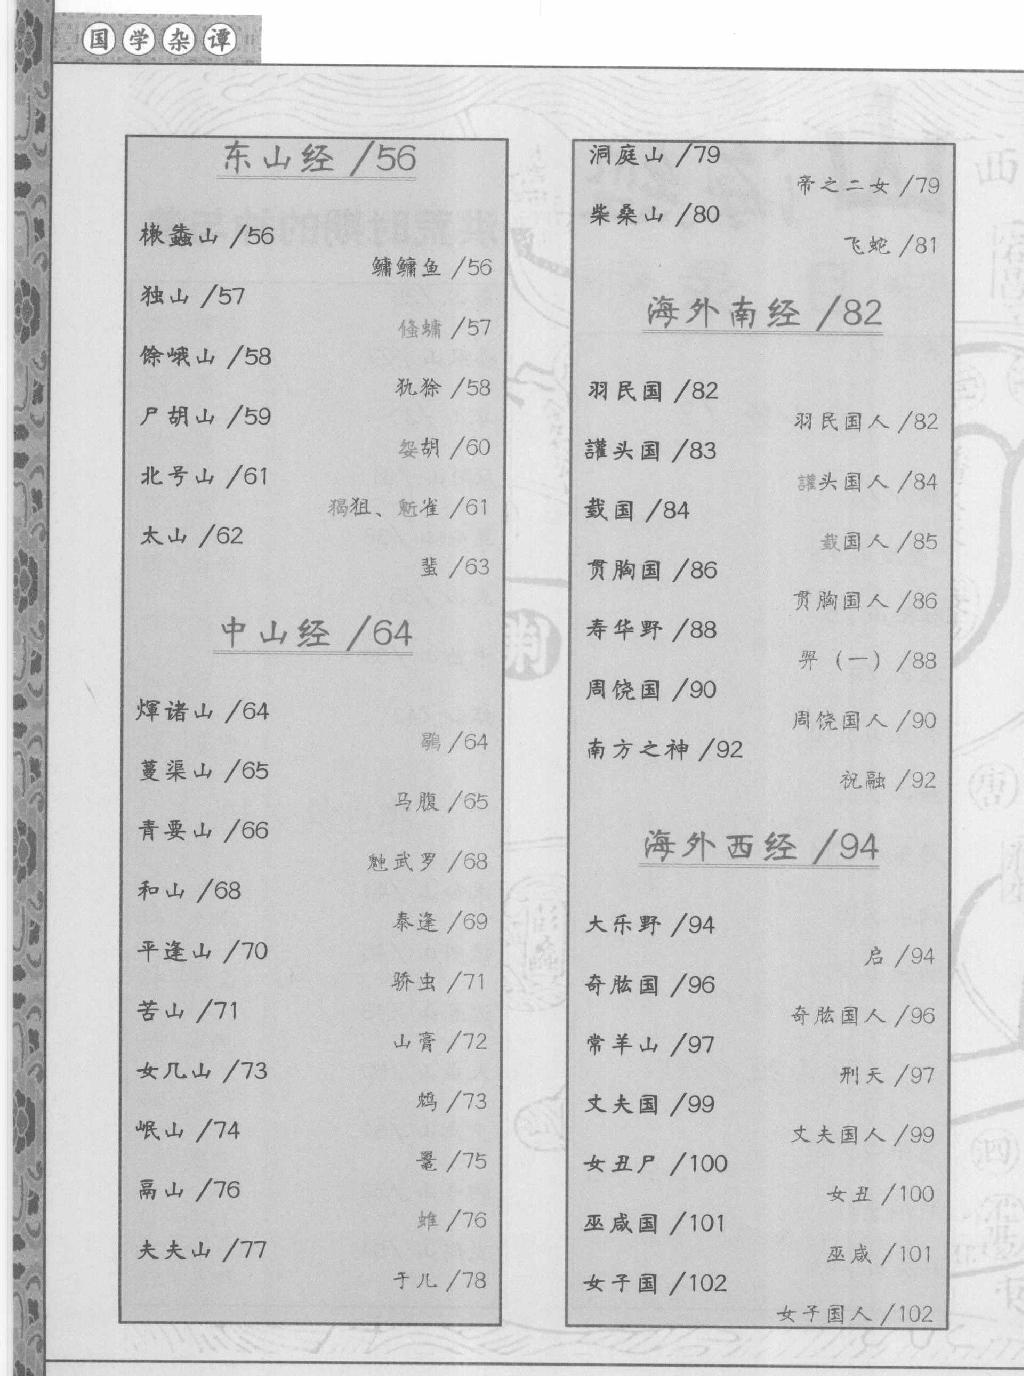 国学杂谭
东山经 /56
樕螽山 /56
鳙鳙鱼 /56
独山 /57
偹蟰 /57
馀峨山 /58
犰狳 /58
尸胡山 /59
妴胡 /60
北号山 /61
猲狙、鬿雀 /61
太山 /62
蜚 /63
中山经 /64
煇诸山 /64
鹖 /64
蔓渠山 /65
马腹 /65
青要山 /66
魃武罗 /68
和山 /68
泰逢 /69
平逢山 /70
骄虫 /71
苦山 /71
山膏 /72
女几山 /73
鸩 /73
岷山 /74
鼍 /75
鬲山 /76
蜼 /76
夫夫山 /77
于儿 /78
洞庭山 /79
帝之二女 /79
柴桑山 /80
飞蛇 /81
海外南经 /82
羽民国 /82
羽民国人 /82
讙头国 /83
讙头国人 /84
臷国 /84
臷国人 /85
贯胸国 /86
贯胸国人 /86
寿华野 /88
羿（一） /88
周饶国 /90
周饶国人 /90
南方之神 /92
祝融 /92
海外西经 /94
大乐野 /94
启 /94
奇肱国 /96
奇肱国人 /96
常羊山 /97
刑天 /97
丈夫国 /99
丈夫国人 /99
女丑尸 /100
女丑 /100
巫咸国 /101
巫咸 /101
女子国 /102
女子国人 /102